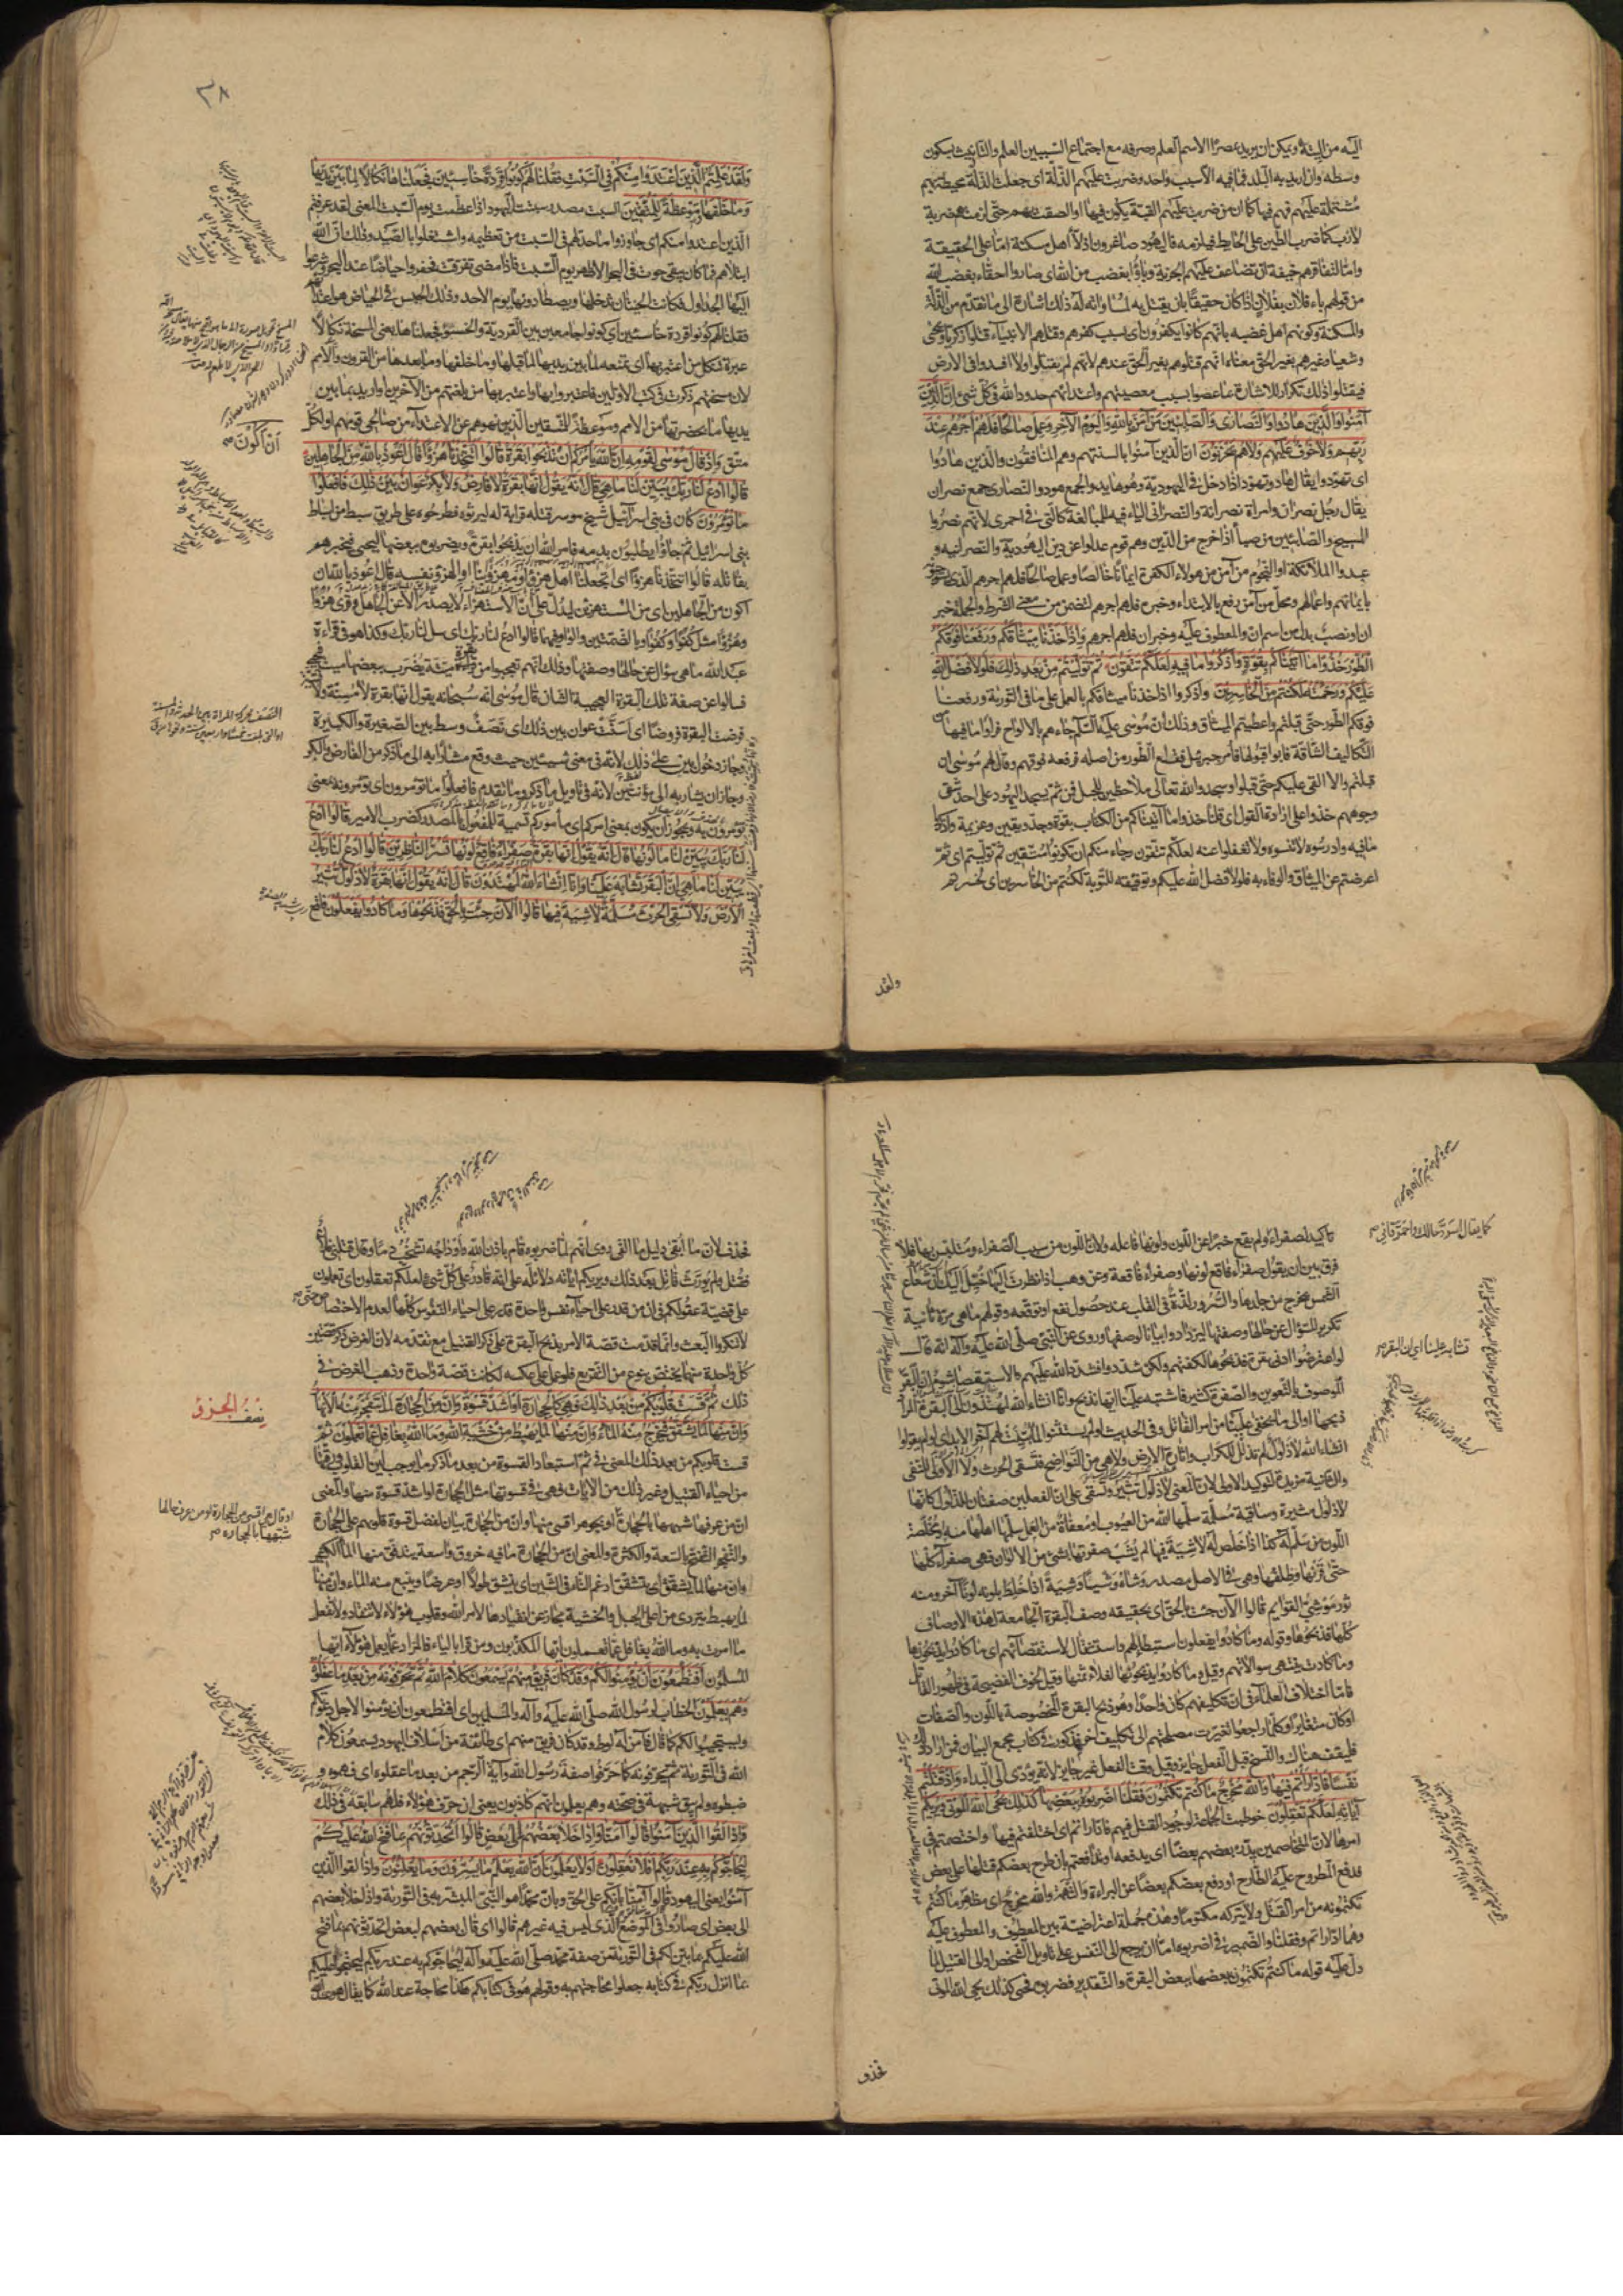 اليه من التيه ويمكن ان يريد مصرا الاسم العلم وصرفه مع اجتماع السببين العلم والتانيث بسكون
وسطه وان اريد به البلد فما فيه الا سبب واحد وضربت عليهم الذلة اى جعلت الذلة محيطة بهم
مشتملة عليهم فهم فيها كما ان من ضربت عليهم القبة يكون فيها او الصقت بهم حتى لزمتهم ضربة
لازب كما ضرب الطين على الحايط فيلزمه فاليهود صاغرون اذلاء اهل مسكنة اما على الحقيقة
واما لتفاقرهم خيفة ان تضاعف عليهم الجزية وباؤا بغضب من الله اى صاروا احقاء بغضب الله
من قولهم باء فلان بفلان اذا كان حقيقا بان يقتل به لمساواته له ذلك اشارة الى ما تقدم من الذلة
والمسكنة وكونهم اهل غضبه بانهم كانوا يكفرون اى بسبب كفرهم وقتلهم الانبياء قتلوا زكريا ويحيى
وشعيا وغيرهم بغير الحق معناه انهم قتلوهم بغير الحق عندهم لانهم لم يقتلوا ولا افسدوا فى الارض
فيقتلوا ذلك تكرار للاشارة بما عصوا بسبب معصيتهم واعتدائهم حدود الله فى كل شئ ان الذين
آمنوا والذين هادوا والنصارى والصابئين من آمن بالله واليوم الآخر وعمل صالحا فلهم اجرهم عند
ربهم ولا خوف عليهم ولا هم يحزنون ان الذين آمنوا بالسنتهم وهم المنافقون والذين هادوا
اى تهودوا يقال هاد وتهود اذا دخل فى اليهودية وهو هايد والجمع هود والنصارى جمع نصران
يقال رجل نصران وامراة نصرانة والنصرانى الياء فيه للمبالغة كالتى فى احمرى لانهم نصروا
المسيح والصابئين من صبا اذا خرج من الدين وهم قوم عدلوا عن دين اليهودية والنصرانية و
عبدوا الملائكة او النجوم من آمن من هولاء الكفرة ايمانا خالصا وعمل صالحا فلهم اجرهم الذى
بايمانهم واعمالهم ومحل من آمن رفع بالابتداء وخبره فلهم اجرهم لتضمن من معنى الشرط والجملة خبر
ان او نصب بدل من اسم ان والمعطوف عليه وخبر ان فلهم اجرهم واذ اخذنا ميثاقكم ورفعنا فوقكم
الطور خذوا ما آتيناكم بقوة واذكروا ما فيه لعلكم تتقون ثم توليتم من بعد ذلك فلولا فضل الله
عليكم ورحمته لكنتم من الخاسرين واذكروا اذ اخذنا ميثاقكم بالعمل على ما فى التورية ورفعنا
فوقكم الطور حتى قبلتم واعطيتم الميثاق وذلك ان موسى عليه السلام جاءهم بالالواح فراوا ما فيها من
التكاليف الشاقة فابوا قبولها فامر جبرئيل فقلع الطور من اصله فرفعه فوقهم وقال لهم موسى ان
قبلتم والا القى عليكم حتى قبلوا وسجدوا لله تعالى ملاحظين للجبل فمن ثم يسجد اليهود على احد شقى
وجوههم خذوا على ارادة القول اى قلنا خذوا ما آتيناكم من الكتاب بقوة وجد ويقين وعزيمة واذكروا
ما فيه وادرسوه ولا تنسوه ولا تغفلوا عنه لعلكم تتقون رجاء منكم ان تكونوا متقين ثم توليتم اى ثم
اعرضتم عن الميثاق والوفاء به فلولا فضل الله عليكم وتوفيقه للتوبة لكنتم من الخاسرين اى لخسرتم
ولقد
٢٨
ولقد علمتم الذين اعتدوا منكم فى السبت فقلنا لهم كونوا قردة خاسئين فجعلناها نكالا لما بين يديها
وما خلفها وموعظة للمتقين السبت مصدر سبتت اليهود اذا عظمت يوم السبت المعنى لقد عرفتم
الذين اعتدوا منكم اى جاوزوا ما حد لهم فى السبت من تعظيمه واشتغلوا بالصيد وذلك ان الله
ابتلاهم فما كان يبقى حوت فى البحر الا ظهر يوم السبت فاذا مضى تفرقت فحفروا حياضا عند البحر وشرعوا
اليها الجداول فكانت الحيتان تدخلها ويصطادونها يوم الاحد وذلك الحبس فى الحياض هو اعتداؤهم
فقلنا لهم كونوا قردة خاسئين اى كونوا جامعين بين القردية والخسو فجعلناها يعنى المسخة نكالا
عبرة تنكل من اعتبر بها اى تمنعه لما بين يديها لما قبلها وما خلفها وما بعدها من القرون والامم
لان مسختهم ذكرت فى كتب الاولين فاعتبروا بها واعتبر بها من بلغتهم من الآخرين او اريد بما بين
يديها ما بحضرتها من الامم وموعظة للمتقين الذين نهوهم عن الاعتداء من صالحى قومهم او لكل
متق واذ قال موسى لقومه ان الله يامركم ان تذبحوا بقرة قالوا اتتخذنا هزوا قال اعوذ بالله من الجاهلين
قالوا ادع لنا ربك يبين لنا ما هى قال انه يقول انها بقرة لا فارض ولا بكر عوان بين ذلك فافعلوا
ما تؤمرون كان فى بنى اسرائيل شيخ موسر قتله قرابة له ليرثوه فطرحوه على طريق سبط من اسباط
بنى اسرائيل ثم جاؤا يطلبون بدمه فامر الله ان يذبحوا بقرة ويضربوه ببعضها ليحيى فيخبرهم
بقاتله قالوا اتتخذنا هزوا اى اتجعلنا اهل هزو او مهزوا بنا او الهزو نفسه قال اعوذ بالله ان
اكون من الجاهلين اى من المستهزئين ليدل على ان الاستهزاء لا يصدر الا عن الجاهل وقرئ هزوا
وهزءا مثل كفوا وكفوا وبالضمتين والواو فيهما قالوا ادع لنا ربك اى سل لنا ربك وكذا هو فى قراءة
عبد الله ما هى سؤال عن حالها وصفتها وذلك انهم تعجبوا من بقرة ميتة يضرب ببعضها ميت فيحيى
فسالوا عن صفة تلك البقرة العجيبة الشان قال موسى انه سبحانه يقول انها بقرة لا مسنة ولا
فرضت البقرة فروضا اى اسنت عوان بين ذلك اى نصف وسط بين الصغيرة والكبيرة
وجاز دخول بين على ذلك لانه فى معنى شيئين حيث وقع مشارا به الى ما ذكر من الفارض والبكر
وجاز ان يشار به الى مؤنثين لانه فى تاويل ما ذكر وما تقدم فافعلوا ما تؤمرون اى تؤمرونه بمعنى
تؤمرون به ويجوز ان يكون بمعنى امركم اى مأموركم تسمية للمفعول بالمصدر كضرب الامير قالوا ادع
لنا ربك يبين لنا ما لونها قال انه يقول انها بقرة صفراء فاقع لونها تسر الناظرين قالوا ادع لنا ربك
يبين لنا ما هى ان البقر تشابه علينا وانا ان شاء الله لمهتدون قال انه يقول انها بقرة لا ذلول تثير
الارض ولا تسقى الحرث مسلمة لا شية فيها قالوا الآن جئت بالحق فذبحوها وما كادوا يفعلون فاقع
ان اكون
تاكيد لصفراء ولم يقع خبرا عن اللون ولونها فاعله ولان اللون من سبب الصفراء ومتلبس بها فلا
فرق بين ان يقول صفراء فاقع لونها وصفراء فاقعة وعن وهب اذا نظرت اليها خيل اليك ان شعاع
الشمس يخرج من جلدها والسرور لذة فى القلب عند حصول نفع او توقعه وقولهم ما هى مرة ثانية
تكرير للسؤال عن حالها وصفتها ليزدادوا بيانا لوصفها وروى عن النبى صلى الله عليه وآله انه قال
لو اعترضوا ادنى بقرة فذبحوها لكفتهم ولكن شددوا فشدد الله عليهم والاستقصاء شؤم ان البقر
الموصوف بالتعوين والصفرة كثير فاشتبه علينا ايها نذبح وانا ان شاء الله لمهتدون الى البقرة المراد
ذبحها او الى ما خفى علينا من امر القاتل وفى الحديث لو لم يستثنوا لما بينت لهم آخر الابد اى لو لم يقولوا
ان شاء الله لا ذلول لم تذلل للكراب واثارة الارض ولا هى من النواضح فتسقى الحرث ولا الاولى للنفى
والثانية مزيدة لتوكيد الاولى لان المعنى لا ذلول تثير وتسقى على ان الفعلين صفتان لذلول كانها
لا ذلول مثيرة وساقية مسلمة سلمها الله من العيوب او معفاة من العمل سلمها اهلها منه او مخلصة
اللون من سلم له كذا اذا خلص له لا شية فيها لم يشب صفرتها بشئ من الالوان فهى صفراء كلها
حتى قرنها وظلفها وهى فى الاصل مصدر وشاه وشيا وشية اذا خلط بلونه لونا آخر ومنه
ثور موشى القوايم قالوا الآن جئت بالحق اى بحقيقه وصف البقرة الجامعة لهذه الاوصاف
كلها فذبحوها وقوله وما كادوا يفعلون استبطاء لهم واستثقال لاستقصائهم اى ما كادوا يذبحونها
وما كادت ينتهى سؤالاتهم وقيل وما كادوا يذبحونها لغلاء ثمنها وقيل لخوف الفضيحة فى ظهور القاتل
فاما اختلاف العلماء فى ان تكليفهم كان واحدا وهو ذبح البقرة المخصوصة باللون والصفات
او كان متغايرا وكلما راجعوا تغيرت مصلحتهم الى تكليف آخر فمذكور فى كتاب مجمع البيان فمن اراد ذلك
فليقف هناك والنسخ قبل الفعل جايز وقبل وقت الفعل غير جايز لانه يؤدى الى البداء واذ قتلتم
نفسا فادارأتم فيها والله مخرج ما كنتم تكتمون فقلنا اضربوه ببعضها كذلك يحى الله الموتى ويريكم
آياته لعلكم تعقلون خوطبت الجماعة لوجود القتل فيهم فاداراتم اى اختلفتم فيها واختصمتم فى
امرها لان المتخاصمين يدرؤ بعضهم بعضا اى يدفعه او تدافعتم بان طرح بعضكم قتلها على بعض
فدفع المطروح عليه الطارح او دفع بعضكم بعضا عن البراءة واتهمه والله مخرج اى مظهر ما كنتم
تكتمونه من امر القتل ولا يتركه مكتوما وهذه جملة اعتراضية بين المعطوف والمعطوف عليه
وهما اداراتم وفقلنا والضمير فى اضربوه اما ان يرجع الى النفس على تاويل الشخص او الى القتيل لما
دل عليه قوله ما كنتم تكتمون ببعضها ببعض البقرة والتقدير فضربوه فحيى كذلك يحى الله الموتى
كما يقال اسود حالك واحمر قانى
تشابه علينا اى ان البقر
فحذف
فحذف لان ما ابقى دليل ما القى روى انهم لما ضربوه قام باذن الله واوداجه تشخب دما وقال قتلنى فلان
فقتل ولم يورث قاتل بعد ذلك ويريكم آياته دلائله على انه قادر على كل شئ لعلكم تعقلون اى تعملون
على قضية عقولكم فى ان من قدر على احياء نفس واحدة قدر على احياء النفوس كلها لعدم الاختصاص حتى
لا تنكروا البعث وانما قدمت قصة الامر بذبح البقرة على ذكر القتيل مع تقدمه لان الغرض ذكر قصتين
كل واحدة منهما يختص بنوع من التقريع فلو عمل على عكسه لكانت قصة واحدة وذهب الغرض فى
ذلك ثم قست قلوبكم من بعد ذلك فهى كالحجارة او اشد قسوة وان من الحجارة لما يتفجر منه الانهار
وان منها لما يشقق فيخرج منه الماء وان منها لما يهبط من خشية الله وما الله بغافل عما تعملون ثم
قست قلوبكم من بعد ذلك المعنى فى ثم استبعاد القسوة من بعد ما ذكر ما يوجب لين القلوب ورقتها
من احياء القتيل وغير ذلك من الآيات فهى فى قسوتها مثل الحجارة او اشد قسوة منها والمعنى
ان من عرفها شبهها بالحجارة او بجوهر اقسى منها وان من الحجارة بيان لفضل قسوة قلوبهم على الحجارة
والتفجر التفتح بالسعة والكثرة والمعنى ان من الحجارة ما فيه خروق واسعة يتدفق منها الماء الكثير
وان منها لما يشقق اى يتشقق ادغم التاء فى الشين اى ينشق طولا او عرضا وينبع منه الماء وان منها
لما يهبط يتردى من اعلى الجبل والخشية مجاز عن انقيادها لامر الله وقلوب هؤلاء لا تنقاد ولا تفعل
ما امرت به وما الله بغافل عما تعملون ايها المكذبون ومن قرا بالياء فالمراد عما يعمل هؤلاء ايها
المسلمون افتطمعون ان يؤمنوا لكم وقد كان فريق منهم يسمعون كلام الله ثم يحرفونه من بعد ما عقلوه
وهم يعلمون الخطاب لرسول الله صلى الله عليه وآله والمسلمين اى افتطمعون ان يؤمنوا لاجل دعوتكم
ويستجيبوا لكم كما قال فآمن له لوط وقد كان فريق منهم اى طائفة من اسلاف اليهود يسمعون كلام
الله فى التورية ثم يحرفونه كما حرفوا صفة رسول الله وآية الرجم من بعد ما عقلوه اى فهموه و
ضبطوه ولم يبق شبهة فى صحته وهم يعلمون انهم كاذبون يعنى ان حرف هؤلاء فلهم سابقة فى ذلك
واذا لقوا الذين آمنوا قالوا آمنا واذا خلا بعضهم الى بعض قالوا اتحدثونهم بما فتح الله عليكم
ليحاجوكم به عند ربكم افلا تعقلون اولا يعلمون ان الله يعلم ما يسرون وما يعلنون واذا لقوا الذين
آمنوا يعنى اليهود قالوا آمنا بانكم على الحق وبان محمدا هو النبى المبشر به فى التورية واذا خلا بعضهم
الى بعض اى صاروا فى الموضع الذى ليس فيه غيرهم قالوا اى قال بعضهم لبعض اتحدثونهم بما فتح
الله عليكم بما بين لكم فى التورية من صفة محمد صلى الله عليه وآله ليحاجوكم به عند ربكم ليحتجوا عليكم
بما انزل ربكم فى كتابه جعلوا محاجتهم به وقولهم هو فى كتابكم هكذا محاجة عند الله كما يقال هو عند الله
نصف الجزو
او قال هى اقسى من الحجارة او من عرف حالها
شبهها بالحجارة